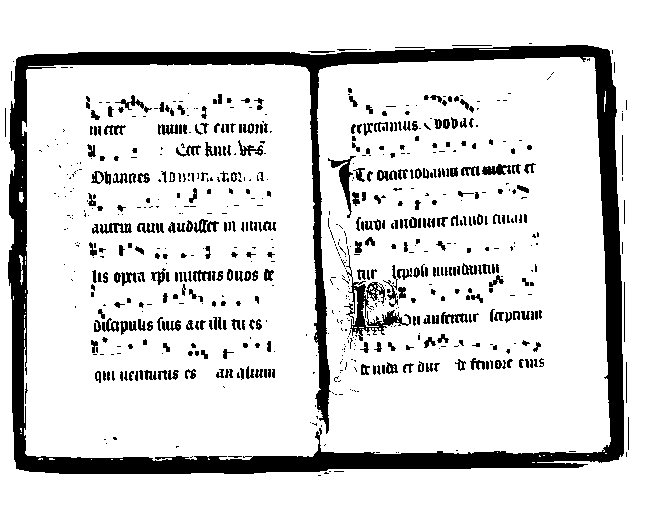 in eter num. Et erit nom.
Ecce kmi.
Iohannes
autem cum audisset in vincu
lis opera xpi mittens duos de
discipulis suis ait illi tu es
qui venturus es an alium
expectamus. Evovae.
Ite dicite iohanni ceci vident et
surdi audiunt claudi curan
tur leprosi mundantur
Non auferetur sceptrum
de iuda et dux de femore eius